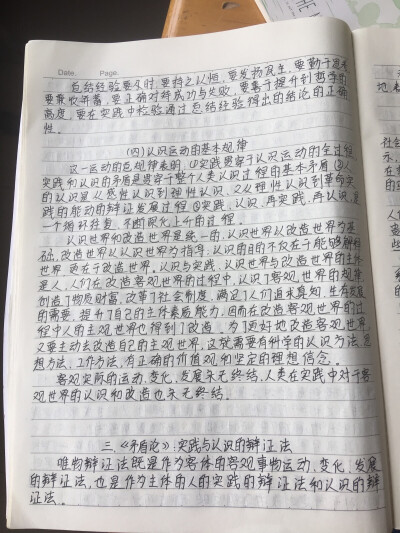 Date. Page.
总结经验要及时,要持之以恒,要发扬民主,要勤于思考
要兼收并蓄,要正确对待成功与失败,要善于提升到哲学的
高度,要在实践中检验通过总结经验得出的结论的正确
性。
(四)认识运动的基本规律
这一运动的总规律表明,①实践贯穿于认识运动的全过程
实践和认识的矛盾是贯穿于整个人类认识过程的基本矛盾②人
的认识是从感性认识到理性认识,又从理性认识到革命实
践的能动的辩证发展过程③实践、认识、再实践、再认识,是
一个循环往复、不断深化上升的过程。
认识世界和改造世界是统一的。认识世界以改造世界为基
础,改造世界以认识世界为指导。认识的目的不仅在于能够解释
世界,更在于改造世界。认识与实践、认识世界与改造世界的主体
是人,人们在改造客观世界的过程中,认识了客观世界的规律
创造了物质财富,改革了社会制度,满足了人们追求真知、生存发展
的需要,提升了自己的主体素质能力,因而在改造客观世界的过
程中人的主观世界也得到了改造。为了更好地改造客观世界
又要主动去改造自己的主观世界,这就需要有科学的认识方法、思
想方法、工作方法,有正确的价值观和坚定的理想信念。
客观实际的运动、变化、发展永无终结,人类在实践中对于客
观世界的认识和改造也永无终结。
三、《矛盾论》:实践与认识的辩证法
唯物辩证法既是作为客体的客观事物运动、变化、发展
的辩证法,也是作为主体的人的实践的辩证法和认识的辩
证法。